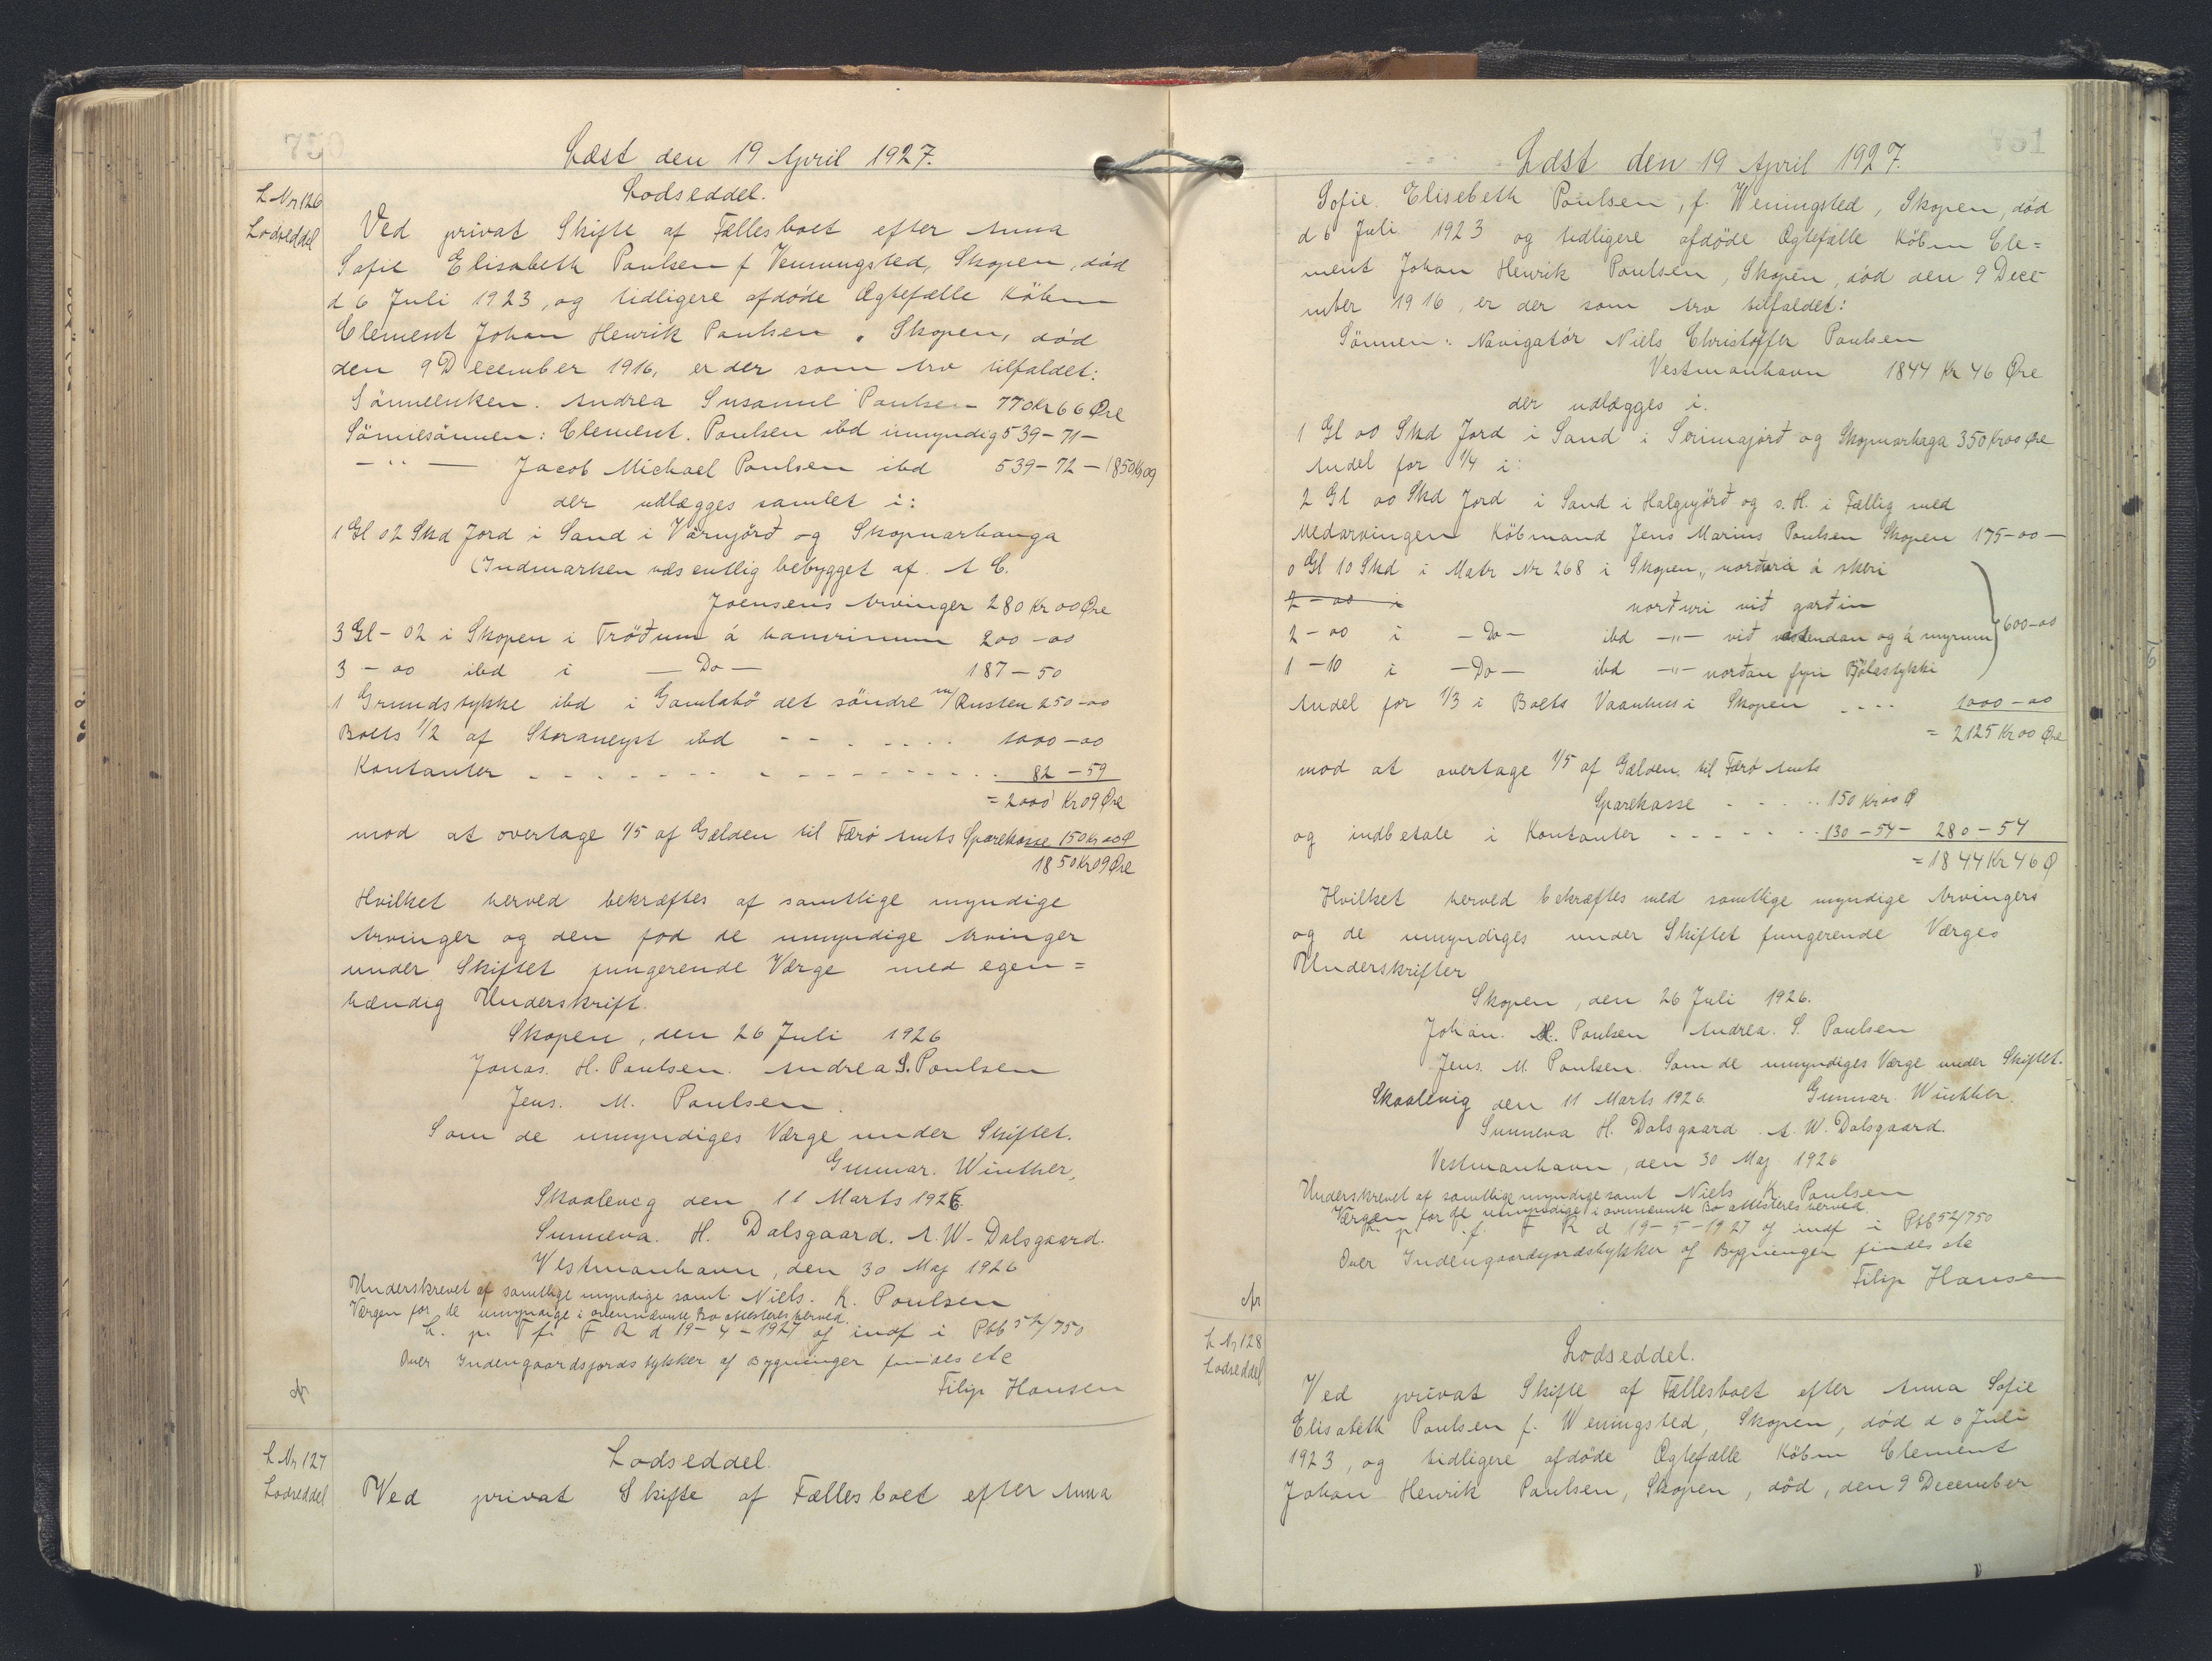 750
Læst den 19 April 1927.
L Nr 126
Lodseddel
Lodseddel.
Ved privat Skifte af Fællesboet efter Anna
Sofie Elisabeth Poulsen f Venningsted, Skopen, død
d 6 Juli 1923, og tidligere afdøde Ægtefælle Købm
Clement Johan Henrik Poulsen, Skopen, død
den 9 December 1916, er der som Arv tilfaldet:
Sönneenken. Andrea Susanne Poulsen 770 Kr 66 Øre
Sönnesönnen: Clement. Poulsen ibd umyndig 539-71-
-"- Jacob Michael Poulsen ibd 539-72-1850 Kr 09
der udlægges samlet i:
1 Gl 02 Skd Jord i Sand i Vårnjörð og Skopunarhauga
(Indmarken væsentlig bebygget af A C.
Joensens Arvinger 280 Kr 00 Øre
3 Gl - 02 i Skopen i Tröðum á hamrinum 200-00
3 - 00 ibd i - Do - 187-50
1 Grundstykke ibd i Gamlabö det söndre m/ Rusten 250-00
Boets 1/2 af Skoraneyst ibd - - - - - - 1000-00
Kontanter - - - - - - - - - - - - - 82-59
= 2000 Kr 09 Øre
mod at overtage 1/5 af Gælden til Færø Amts Sparekasse 150 Kr 00 Ø
1850 Kr 09 Øre
Hvilket herved bekræftes af samtlige myndige
Arvinger og den for de umyndige Arvinger
under Skiftet fungerende Værge med egen=
hændig Underskrift.
Skopen, den 26 Juli 1926
Jonas. H. Poulsen. Andrea S. Poulsen
Jens. M. Poulsen.
Som de umyndiges Værge under Skiftet.
Gunnar. Winther,
Skaalevig den 11 Marts 1926
Sunneva. H. Dalsgaard. A. W. Dalsgaard.
Vestmanhavn, den 30 Maj 1926
Underskrevet af samtlige myndige samt Niels. K. Poulsen
Værgen for de umyndige i ovennævnte Bo attesteres herved.
L. p. T f. F R d 19-4-1927 og indf i Pbb 52/750
Over Indengaardsjordstykker og Bygninger findes etc
Filip Hansen
L Nr 127
Lodseddel
Lodseddel.
Ved privat Skifte af Fællesboet efter Anna
751
Læst den 19 April 1927.
Sofie. Elisebeth Poulsen, f. Wenningsted, Skopen, död
d 6 Juli 1923 og tidligere afdöde Ægtefælle Købm Cle=
ment Johan Henrik Poulsen, Skopen, död den 9 Dece
mber 1916, er der som Arv tilfaldet:
Sönnen: Navigatør Niels Christoffer Poulsen
Vestmanhavn 1844 Kr 46 Øre
der udlægges i.
1 Gl 00 Skd Jord i Sand i Serimajörð og Skopunarhaga 350 Kr 00 Øre
Andel for 1/4 i:
2 Gl 00 Skd Jord i Sand i Halgujörð og s. H. i Fællig med
Medarvingen Købmand Jens Marius Poulsen Skopen 175-00-
0 Gl 10 Skd i Matr Nr 268 i Skopen, norðuri á skeri
2 - 00 i norðuri við garðin
2 - 00 i - Do - ibd -"- við vestendan og á myrum 600-00
1 - 10 i - Do - ibd -"- norðan fyri Bölastykki
Andel for 1/3 i Boets Vaanhus i Skopen - - - - 1000-00
= 2125 Kr 00 Øre
mod at overtage 1/5 af Gælden til Færø Amts
Sparekasse - - - - - 150 Kr 00 Ø
og indbetale i Kontanter - - - - - - 130-54- 280-54
= 1844 Kr 46 Ø
Hvilket herved bekræftes med samtlige myndige Arvingers
og de umyndiges under Skiftet fungerende Værges
Underskrifter
Skopen, den 26 Juli 1926.
Johan. H. Poulsen Andrea. S. Poulsen
Jens. M. Poulsen. Som de umyndiges Værge under Skiftet.
Skaalevig den 11 Marts 1926. Gunnar. Winther.
Sunneva H. Dalsgaard. A. W. Dalsgaard.
Vestmanhavn, den 30 Maj 1926
Underskrevet af samtlige myndige samt Niels K. Poulsen
Værgen for de umyndige i ovennævnte Bo attesteres herved.
L. p. T. f. F R d 19-5-1927 og indf i Pbb 52/750
Over Indengaardsjordstykker og Bygninger findes etc
Filip Hansen
L Nr 128
Lodseddel
Lodseddel.
Ved privat Skifte af Fællesboet efter Anna Sofie
Elisabeth Poulsen f. Wenningsted, Skopen, död d 6 Juli
1923, og tidligere afdöde Ægtefælle Købm Clement
Johan Henrik Poulsen, Skopen, död, den 9 December